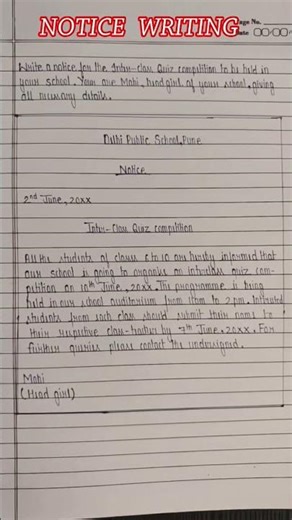 NOTICE WRITING
Page No.
Date
Write a notice for the Inter-class Quiz competition to be held in
your school. Your are Mahi, head girl of your school, giving
all necessary details.
Delhi Public School, Pune
Notice
2nd June, 20xx
Inter-Class Quiz competition
All the students of classes 6 to 10 are hereby informed that
our school is going to organise an interclass quiz com-
petition on 10th June, 20xx. The programme is being
held in our school auditorium from 11am to 2 pm. Intrested
students from each class should submit their names to
their respective class-teacher by 7th June, 20xx. For
further queries please contact the undersigned.
Mahi
(Head girl)